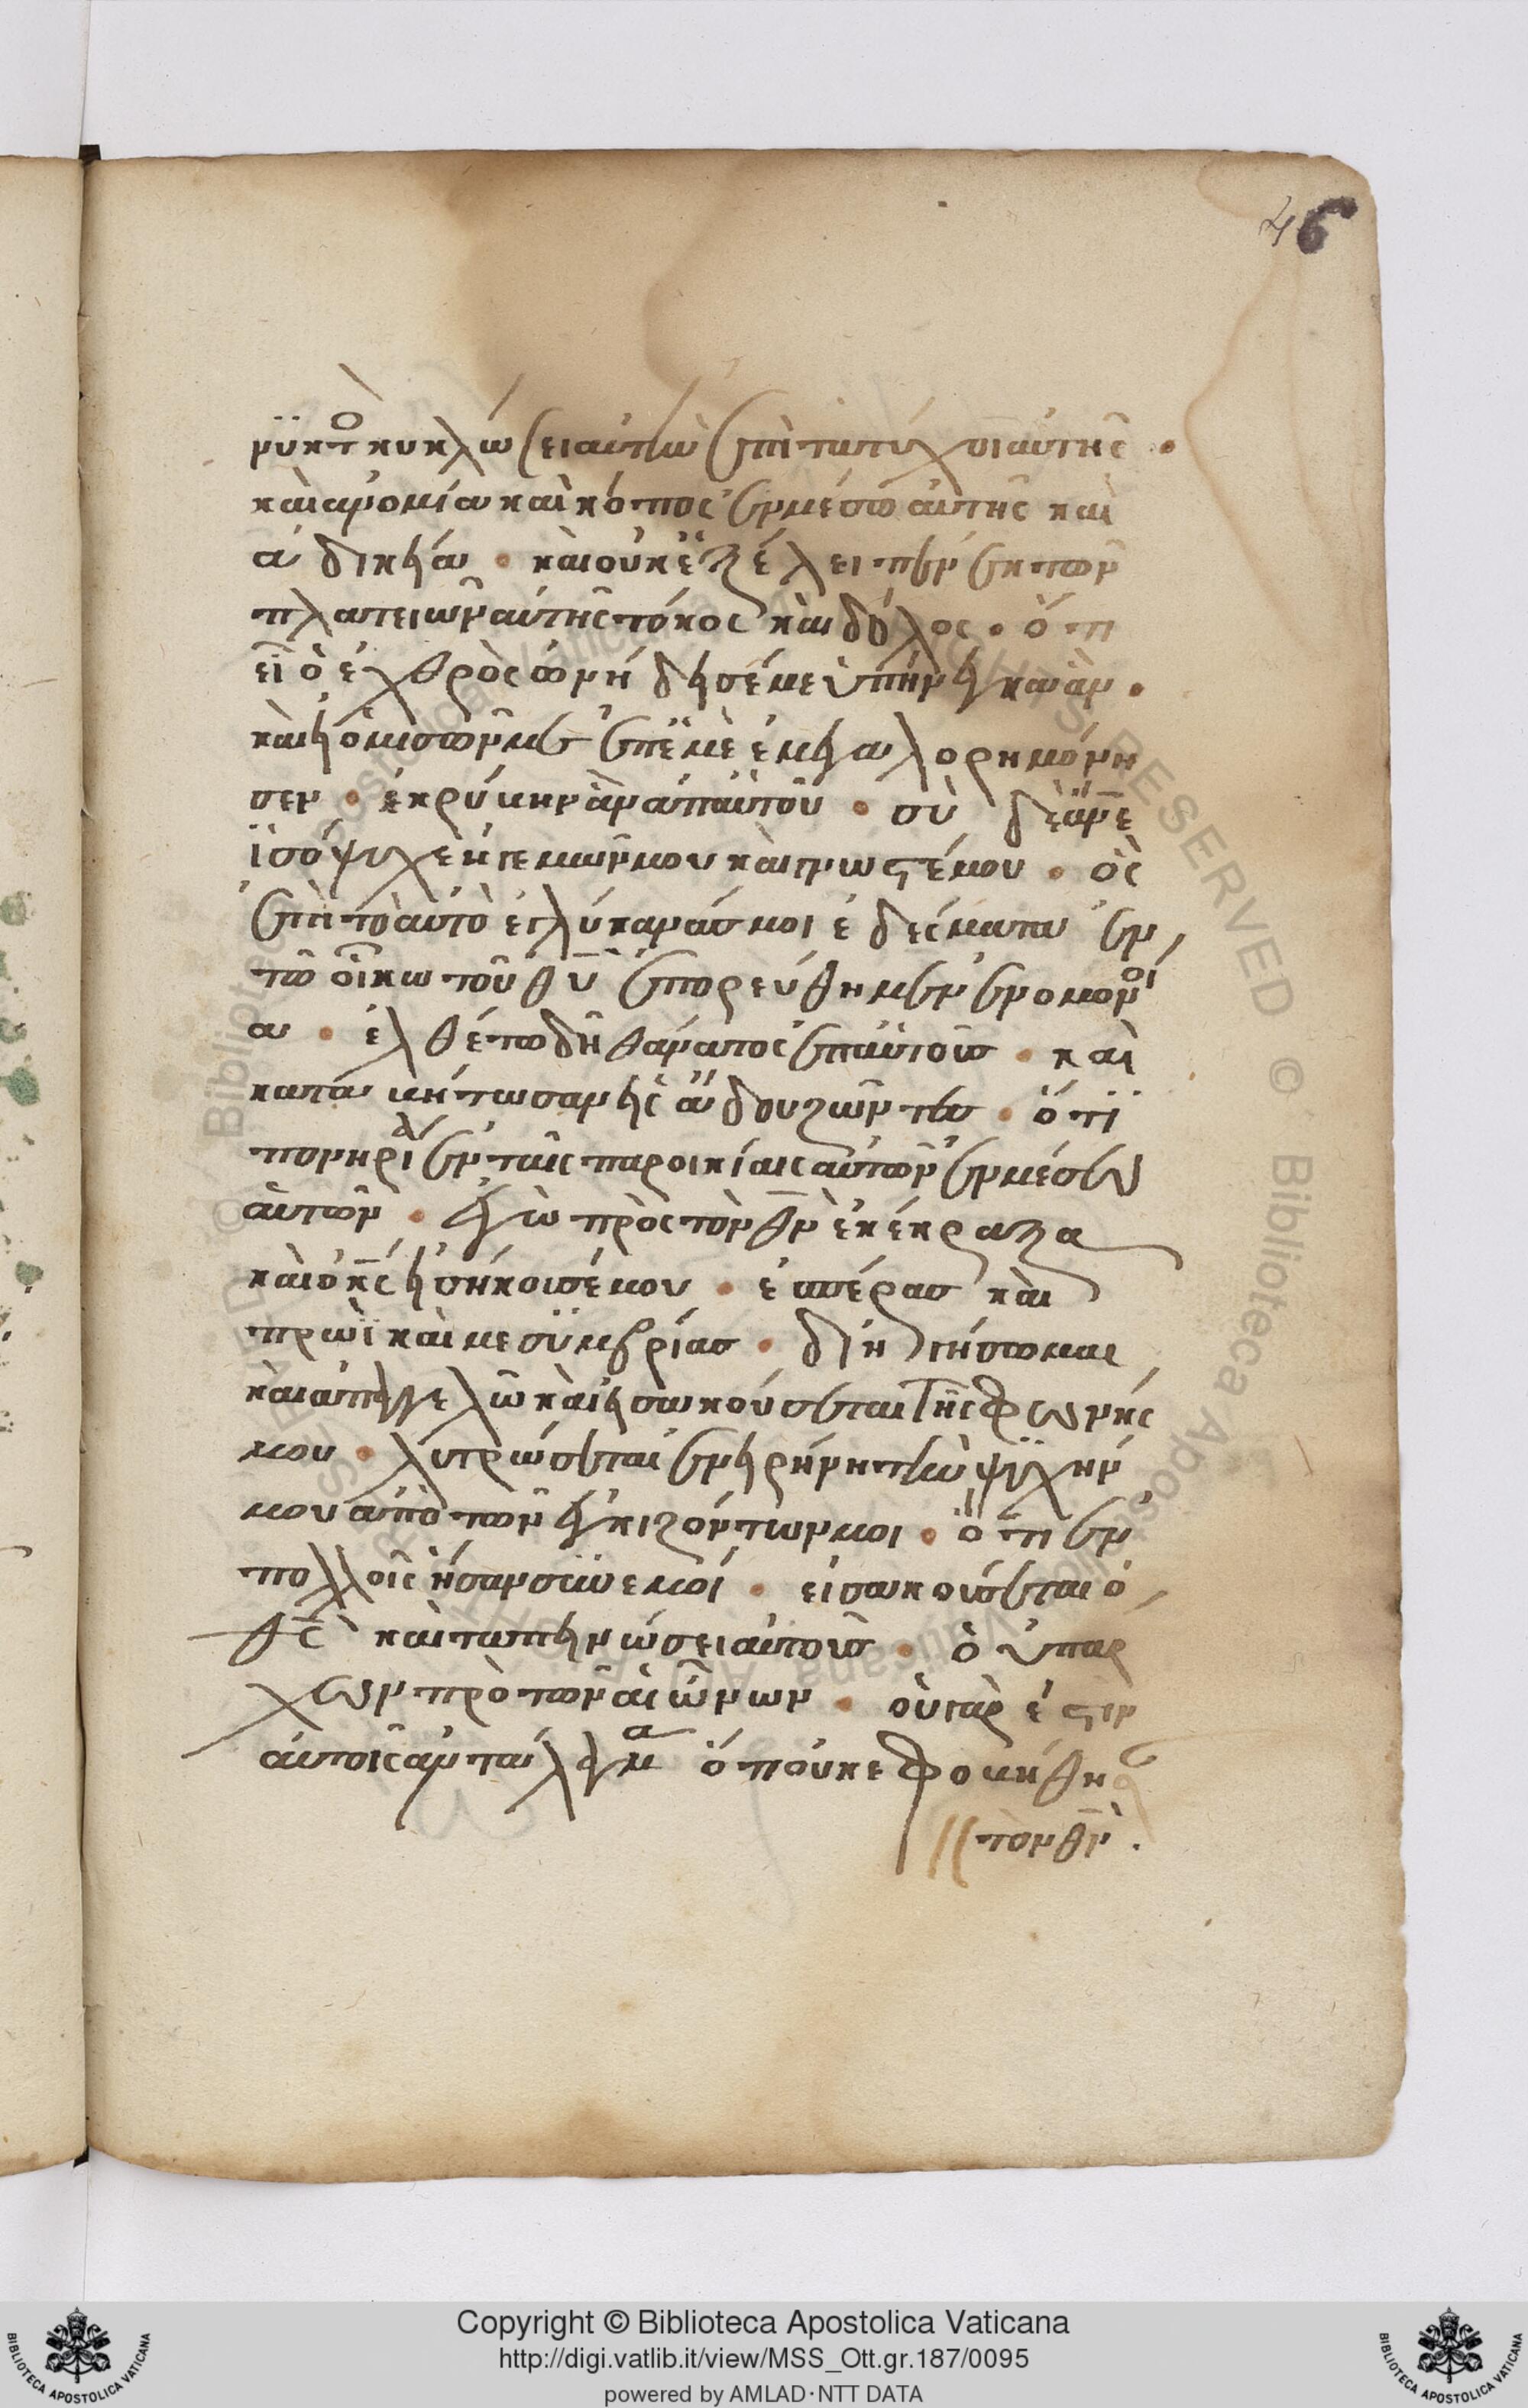 46
νϋκτὸ κυκλώσει αυτὴν ἐπὶ τὰ τείχοι αὐτῆς ·
καὶ ανομία καὶ κόπος ἐν μέσω αὐτῆς καὶ
ἀδικεία · καὶ οὐκ ἐξέλειπεν ἐκ τῶν
πλατειῶν αὐτῆς τόκος καὶ δόλος · ὅτι
εἰ ὁ ἐχθρὸς ὠνήδησέ με ὑπήνεγκα ἂν ·
καὶ ει ὁ μισῶν με ἐπ ἐμὲ ἐμεγαλορημόνη
σεν · ἐκρύβην ἂν απ αὐτοῦ · σὺ δὲ ἄνε
ϊσόψυχε ἡγεμών μου καὶ γνωστέ μου · ὃς
ἐπὶ τὸ αὐτὸ ἐγλύκανάς μοι ἐδέσματα ἐν
τῶ οἴκω τοῦ θυ ἐπορεύθημεν ἐν ομονοί
α · ἐλθέτω δὴ θάνατος ἐπ αὐτοὺς · καὶ
καταβήτωσαν εἰς ἅδου ζῶντες · ὅτι
πονηρία ἐν ταῖς παροικίαις αὐτῶν ἐν μέσω
αὐτῶν · ἐγὼ πρὸς τὸν θν ἐκέκραξα
καὶ ὁ κς εισήκουσέ μου · ἑσπέρας καὶ
πρωῒ καὶ μεσϋμβρίας · διηγήσομαι
καὶ απαγγελῶ καὶ εισακούσεται τῆς φωνῆς
μου · λυτρώσεται ἐν ειρήνη τὴν ψϋχήν
μου απὸ τῶν ἐγκιζόντων μοι · ὅτι ἐν
πολλοῖς ἦσαν σϋν ἐμοί · εἰσακούσεται ὁ
θς καὶ ταπεινώσει αὐτοὺς · ὁ ὑπαρ
χων πρὸ τῶν αἰώνων · οὐ γάρ ἐστιν
αὐτοῖς αντάλαγμα ὅτ οὐκ ἐφοβήθησ
τὸν θν .
Copyright © Biblioteca Apostolica Vaticana
http://digi.vatlib.it/view/MSS_Ott.gr.187/0095
powered by AMLAD·NTT DATA